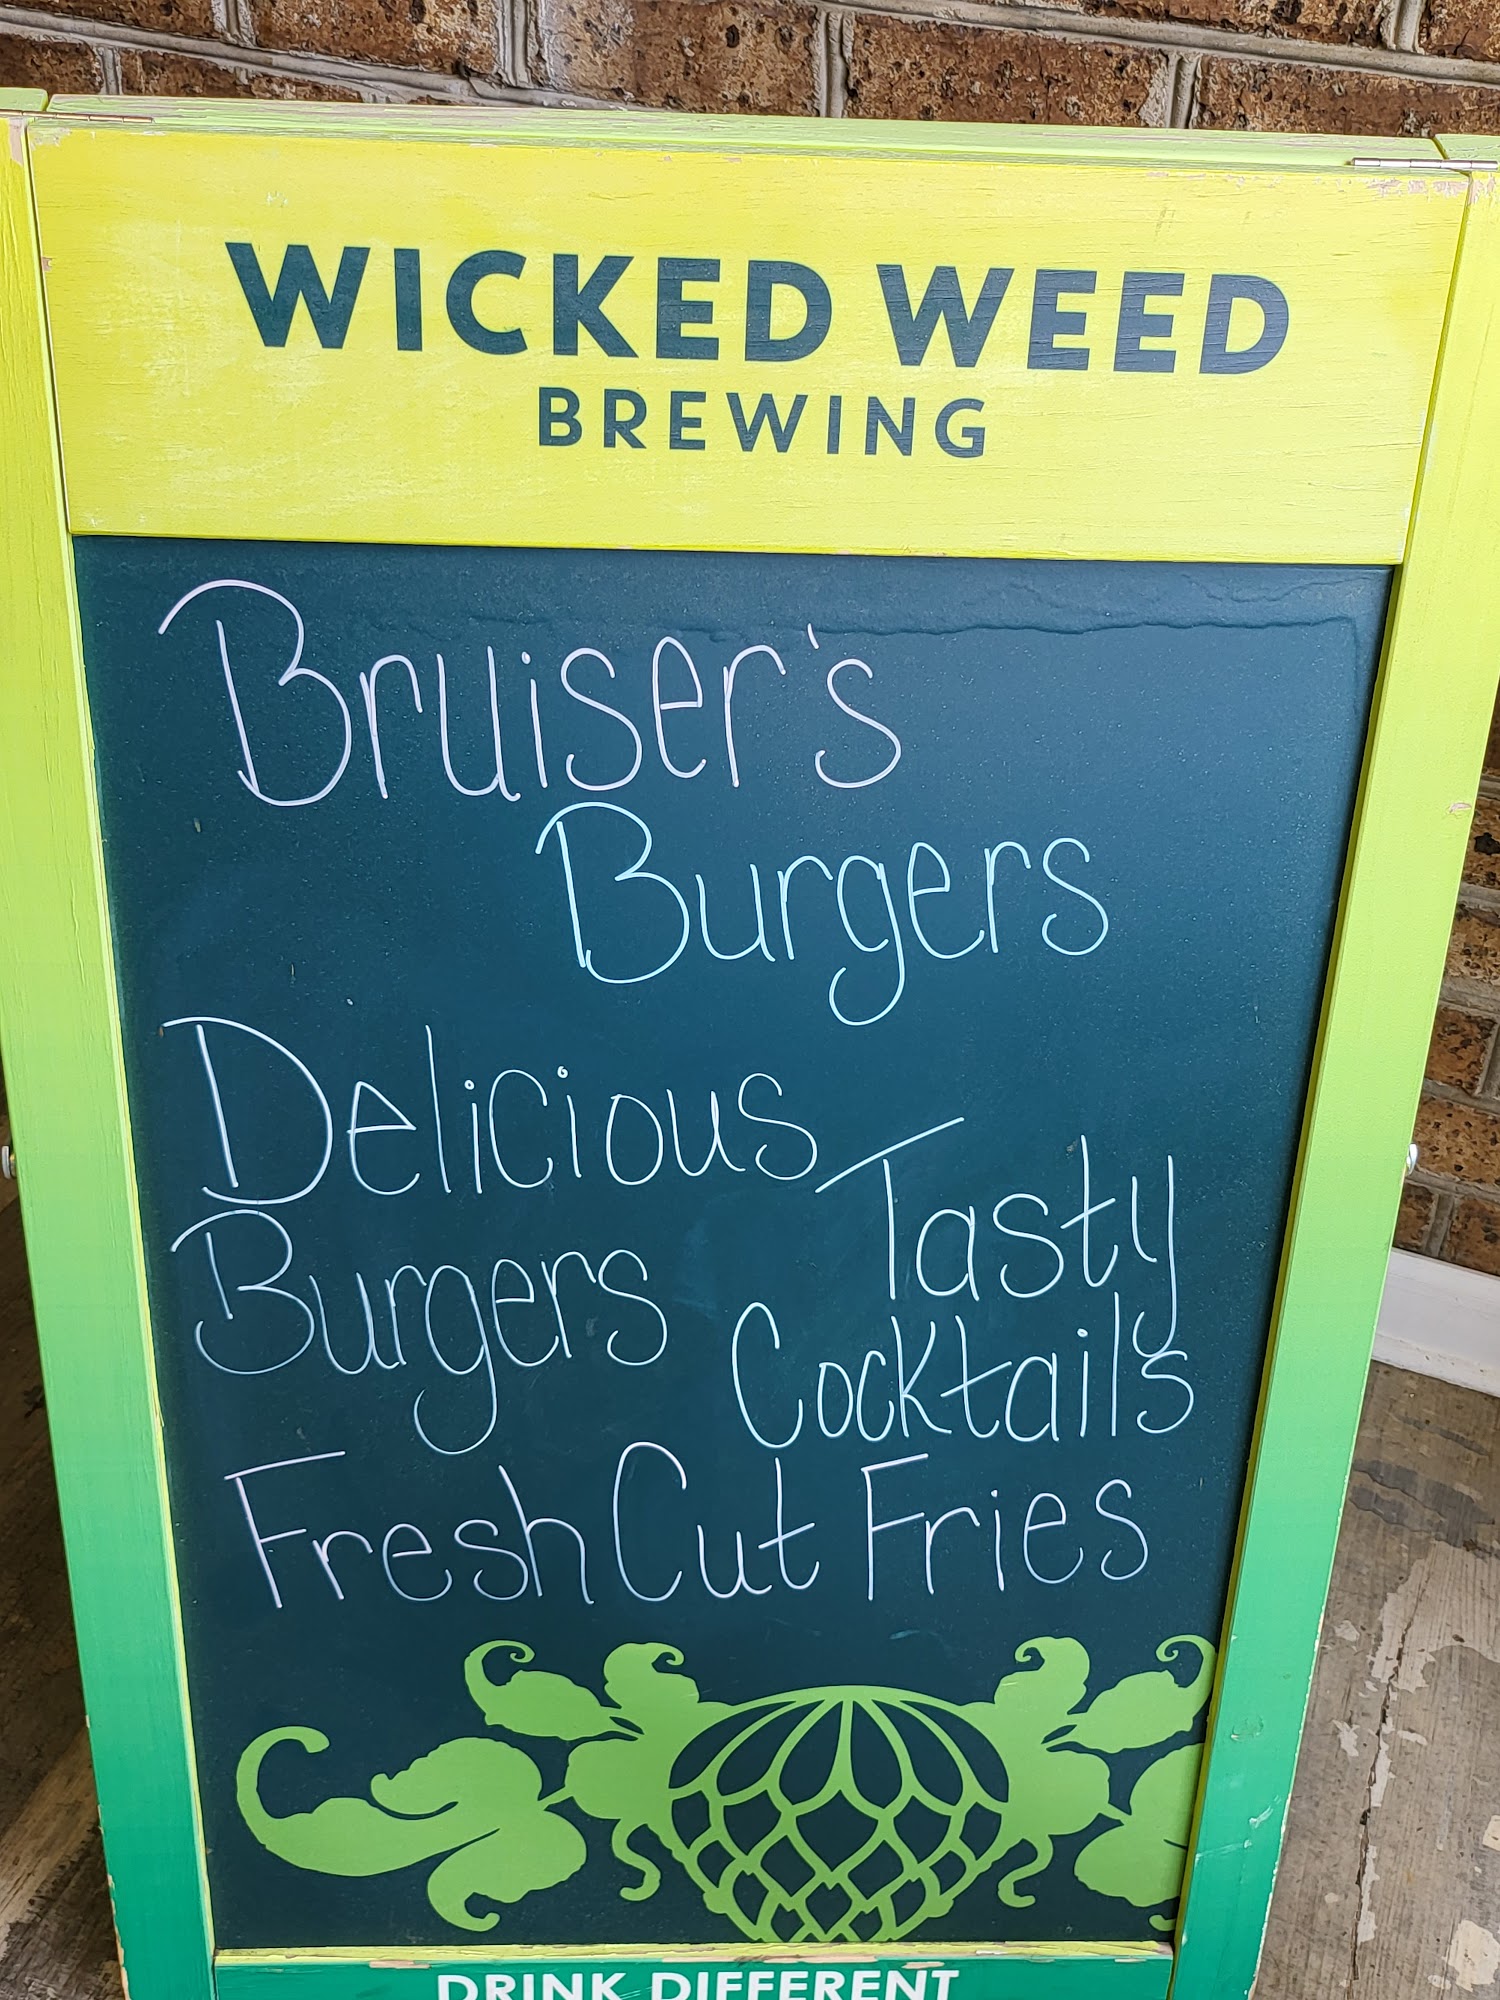 WICKED WEED
BREWING
Bruiser's
Burgers
Delicious
Burgers
Tasty
Cocktails
Fresh Cut Fries
DRINK DIFFERENT